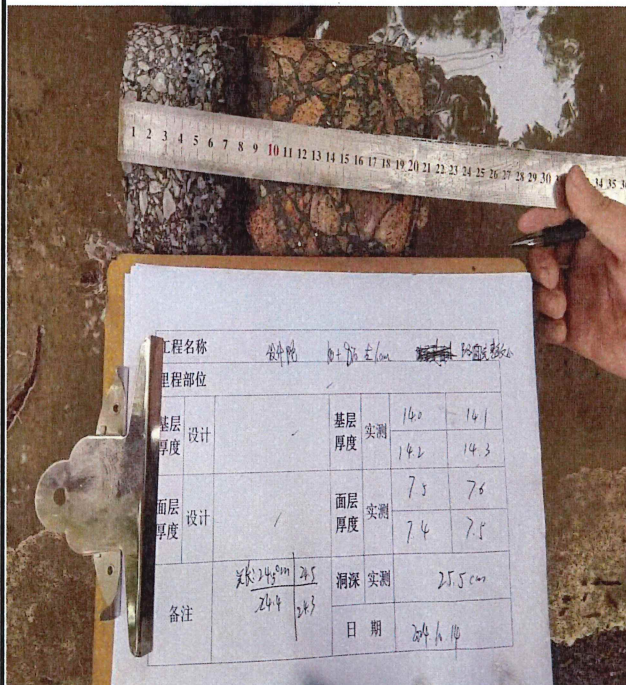 1 2 3 4 5 6 7 8 9 10 11 12 13 14 15 16 17 18 19 20 21 22 23 24 25 26 27 28 29 30 34 35
工程名称
里程部位
基层厚度 设计 基层厚度 实测 14.0 14.1
14.2 14.3
面层厚度 设计 面层厚度 实测 7.5 7.6
7.4 7.5
备注 24.5cm 24.5
24.4 24.3
洞深 实测 25.5cm
日期